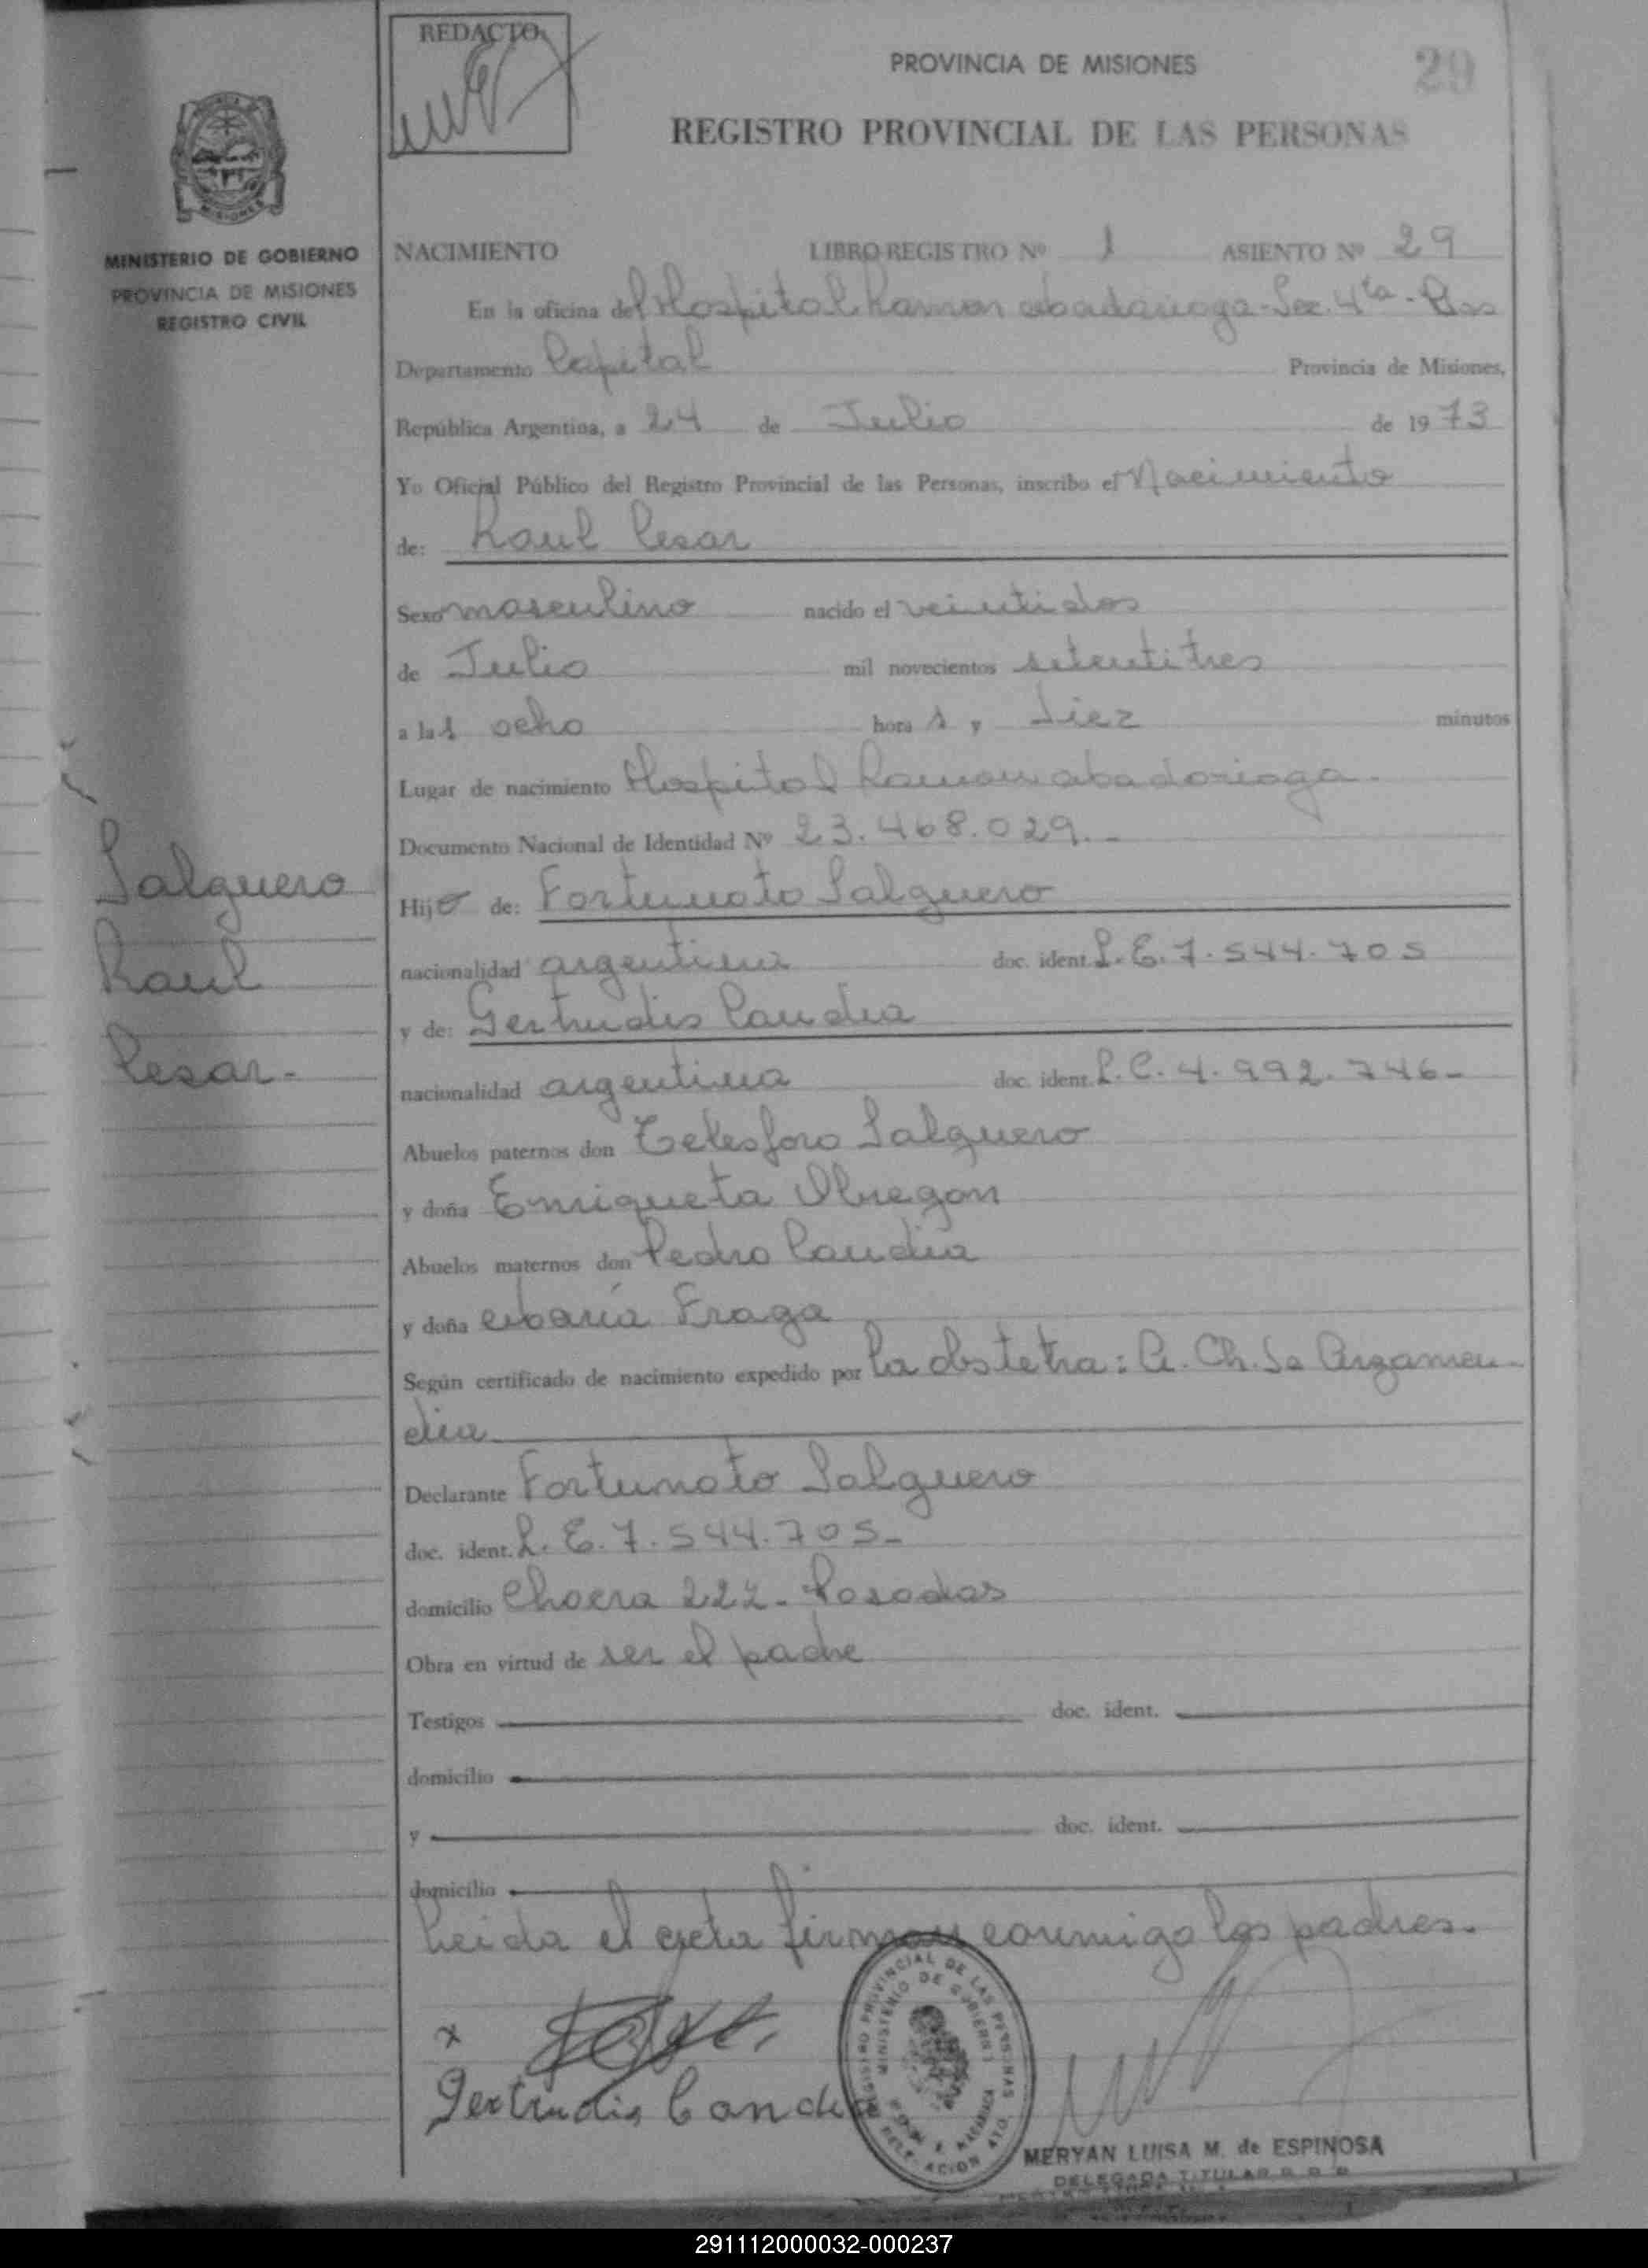 REDACTO
PROVINCIA DE MISIONES
29
REGISTRO PROVINCIAL DE LAS PERSONAS
MISIONES
MINISTERIO DE GOBIERNO
PROVINCIA DE MISIONES
REGISTRO CIVIL
NACIMIENTO LIBRO-REGISTRO Nº 1 ASIENTO Nº 29
En la oficina del Hospital Ramon abadarioga - Sec. 4ta - Pdas
Departamento Capital Provincia de Misiones,
República Argentina, a 24 de Julio de 1973
Yo Oficial Público del Registro Provincial de las Personas, inscribo el Nacimiento
de: Raul Cesar
Sexo masculino nacido el veintidos
de Julio mil novecientos setentitres
a las ocho horas y diez minutos
Lugar de nacimiento Hospital Ramon abadarioga.
Documento Nacional de Identidad Nº 23.468.029.-
Salguero
Raul
Cesar.-
Hijo de: Fortunato Salguero
nacionalidad argentina doc. ident. L.E. 7.544.705
y de: Gertrudis Candia
nacionalidad argentina doc. ident. L.C. 4.992.746-
Abuelos paternos don Telesforo Salguero
y doña Enriqueta Obregon
Abuelos maternos don Pedro Candia
y doña María Fraga
Según certificado de nacimiento expedido por la obstetra: A. Ch. de Argamen-
dia
Declarante Fortunato Salguero
doc. ident. L.E. 7.544.705-
domicilio Chacra 222- Posadas
Obra en virtud de ser el padre
Testigos doc. ident.
domicilio
y doc. ident.
domicilio
Leida el acta firman conmigo los padres.
x
Gertrudis Candia
REGISTRO PROVINCIAL DE LAS PERSONAS
MINISTERIO DE GOBIERNO
MERYAN LUISA M. de ESPINOSA
DELEGADA TITULAR R. P. P.
291112000032-000237